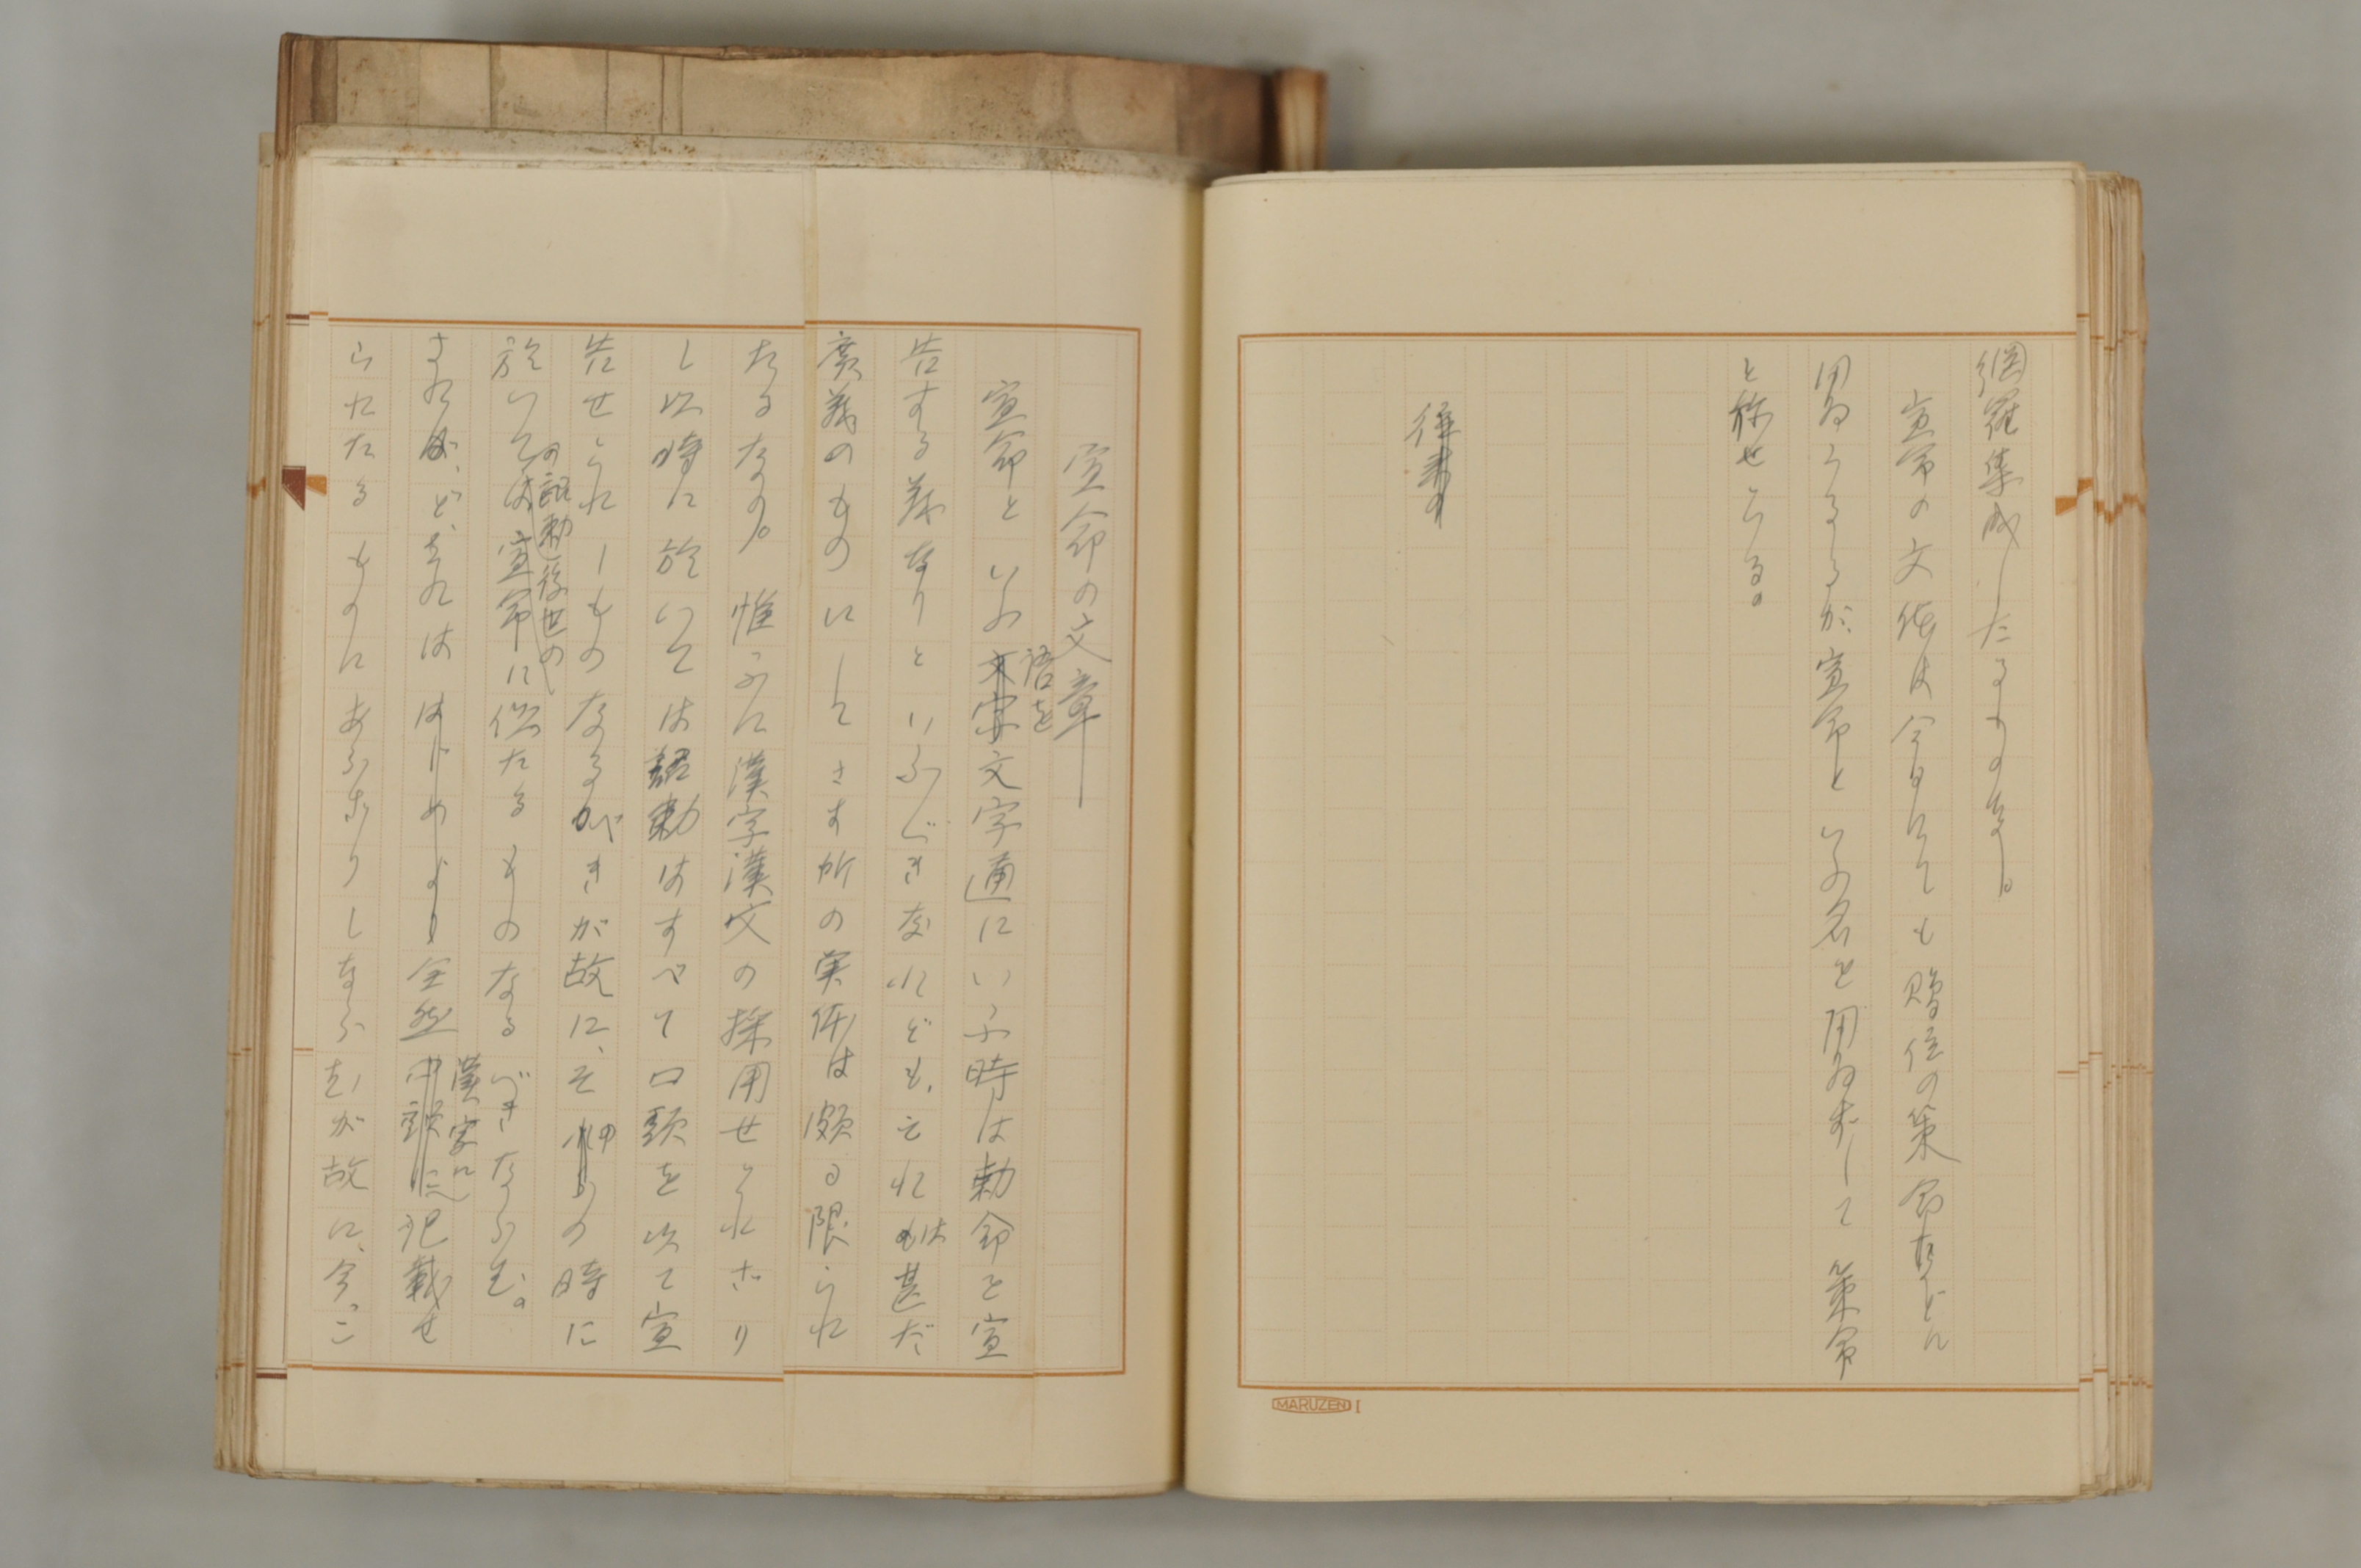 網羅集成したるものなり。
宣命の文体は今日にても贈位の策命などに
用ゐらるるが、宣命といふ名を用ゐずして策命
と称せらる。
宣命の文章
宣命といふ語を文字通にいふ時は勅命を宣
告する義なりといふべきなれども、それは甚だ
廣義のものにしてさす所の実体は頗る限られ
たるなり。惟ふに漢字漢文の採用せられざり
し以時に於いては詔勅はすべて口頭を以て宣
告せられしものなるべきが故に、その時に
の詔勅後世の
於いては宣命に似たるものなるべきならむ。
されど、それは全然漢字に記載せ
られたるものにあらざりしならむが故に、今、こ
MARUZEN I